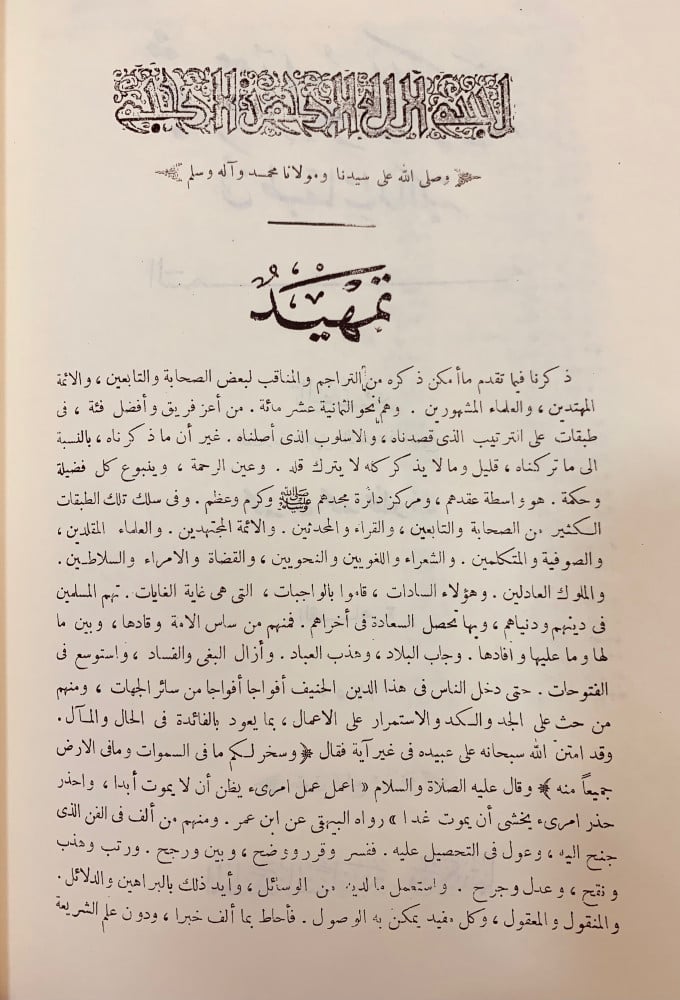 بسم الله الرحمن الرحيم
وصلى الله على سيدنا ومولانا محمد وآله وسلم
تمهيد
ذكرنا فيما تقدم ما أمكن ذكره من التراجم والمناقب لبعض الصحابة والتابعين ، والائمة
المهتدين ، والعلماء المشهورين . وهم نحو الثمانية عشر مائة . من أعز فريق وأفضل فئة ، فى
طبقات على الترتيب الذى قصدناه ، والاسلوب الذى أصلناه . غير أن ما ذكرناه ، بالنسبة
الى ما تركناه ، قليل وما لا يذكر كله لا يترك قله . وعين الرحمة ، وينبوع كل فضيلة
وحكمة . هو واسطة عقدهم ، ومركز دائرة مجدهم ﷺ وكرم وعظم . وفى سلك تلك الطبقات
الكثير من الصحابة والتابعين ، والقراء والمحدثين . والائمة المجتهدين . والعلماء المقلدين ،
والصوفية والمتكلمين . والشعراء واللغويين والنحويين ، والقضاة والامراء والسلاطين .
والملوك العادلين . وهؤلاء السادات ، قاموا بالواجبات ، التى هى غاية الغايات . تهم المسلمين
فى دينهم ودنياهم ، وبها تحصل السعادة فى أخراهم . فمنهم من ساس الامة وقادها ، وبين ما
لها وما عليها وافادها . وجاب البلاد ، وهذب العباد . وأزال البغى والفساد ، واستوسع فى
الفتوحات . حتى دخل الناس فى هذا الدين الحنيف أفواجا أفواجا من سائر الجهات ، ومنهم
من حث على الجد والكد والاستمرار على الاعمال ، بما يعود بالفائدة فى الحال والمآل .
وقد امتن الله سبحانه على عبيده فى غير آية فقال ﴿ وسخر لكم ما فى السموات ومافى الارض
جميعاً منه ﴾ وقال عليه الصلاة والسلام « اعمل عمل امرىء يظن أن لا يموت أبدا ، واحذر
حذر امرىء يخشى أن يموت غدا » رواه البيهقى عن ابن عمر . ومنهم من ألف فى الفن الذى
جنح اليه ، وعول فى التحصيل عليه . ففسر وقرر ووضح ، وبين ورجح . ورتب وهذب
ونقح ، وعدل وجرح . واستعمل ما لديه من الوسائل ، وأيد ذلك بالبراهين والدلائل .
والمنقول والمعقول ، وكل مفيد يمكن به الوصول . فأحاط بما ألف خبرا ، ودون علم الشريعة